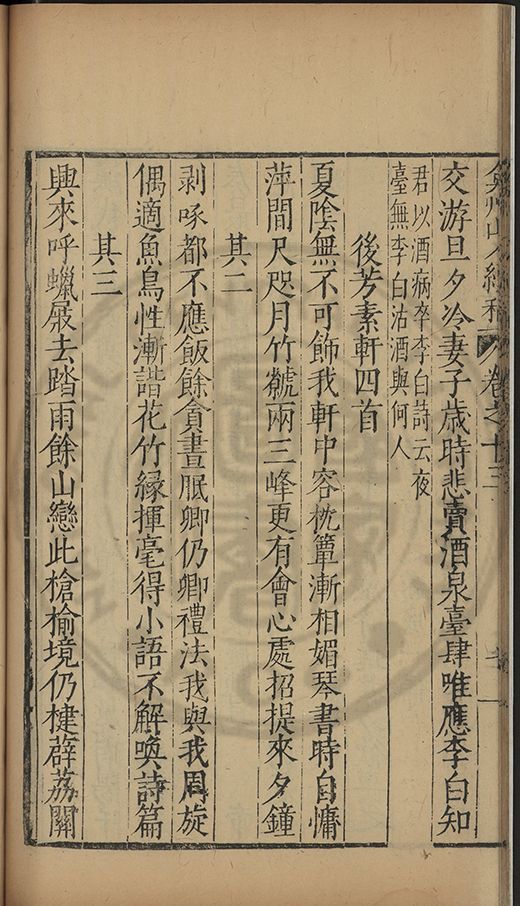 弇州山人續稿 卷之十三
交游旦夕冷妻子歲時悲賣酒泉臺肆唯應李白知
君以酒病卒李白詩云夜
臺無李白沽酒與何人
後芳素軒四首
夏陰無不可飾我軒中容枕簟漸相媚琴書時自慵
萍間尺咫月竹虢兩三峰更有會心處招提來夕鐘
其二
剥啄都不應飯餘貪晝眠卿仍卿禮法我與我周旋
偶適魚鳥性漸諧花竹緣揮毫得小語不解喚詩篇
其三
興來呼蠟屐去踏雨餘山戀此槍榆境仍楗薜荔關